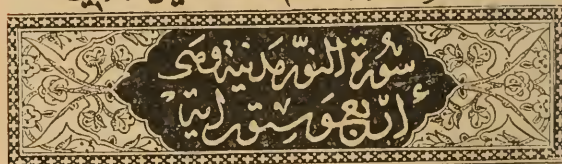 سُورَةُ النُّورِ مَدَنِيَّة وهى
أربع وستون اية